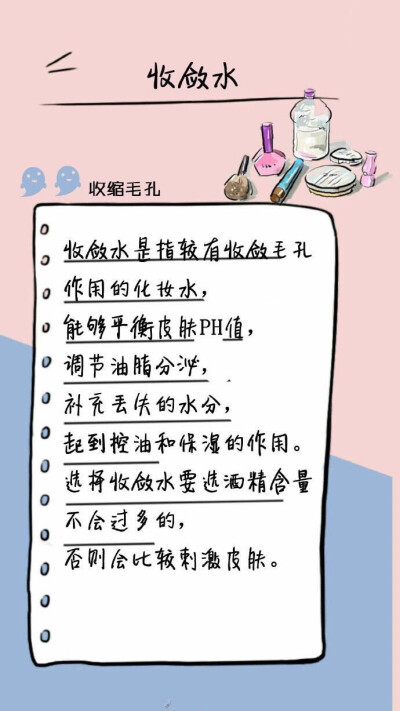 收敛水
收缩毛孔
收敛水是指较有收敛毛孔
作用的化妆水，
能够平衡皮肤PH值，
调节油脂分泌，
补充丢失的水分，
起到控油和保湿的作用。
选择收敛水要选酒精含量
不会过多的，
否则会比较刺激皮肤。